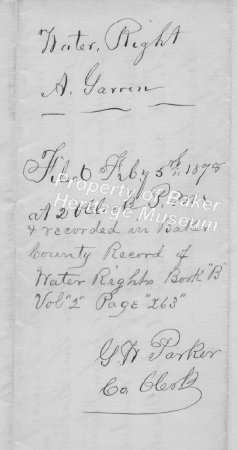 Water, Right
A. Garren
Filed Feby 5th 1898
at 2 P.M.
& recorded in Baker
County Record of
Water Rights Book "B"
Vol "2" Page "263"
G. W. Parker
Co. Clerk
Property of Baker
Heritage Museum